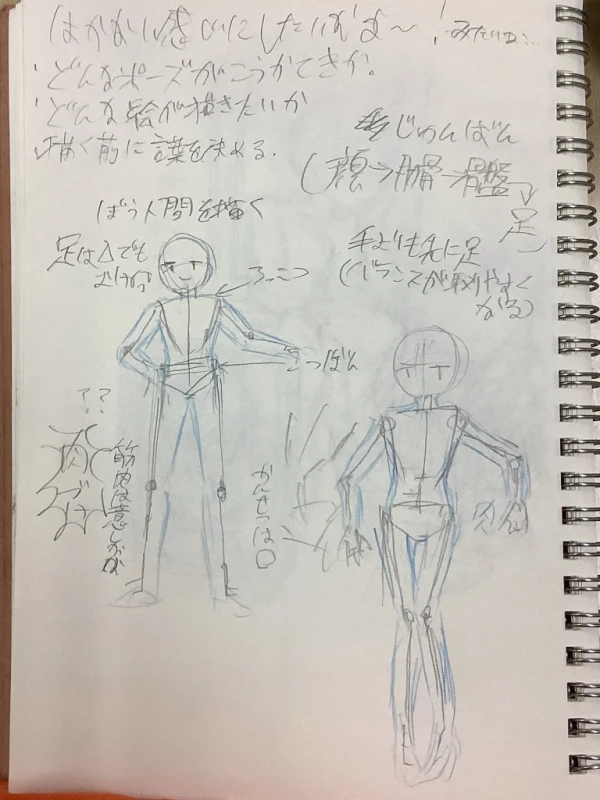 はかない感じにしたいかな〜! みたいな…
・どんなポーズがこうかてきか。
・どんな絵が描きたいか
描く前に言葉を決める。
じゅんばん
(顔→肋骨→骨盤→足)
ぼう人間を描く
足は△でも
手よりも先に足
(バランスが取りやすく
なる)
ろっこつ
こつばん
??
肉づき
筋肉は意しが
かんせつは○